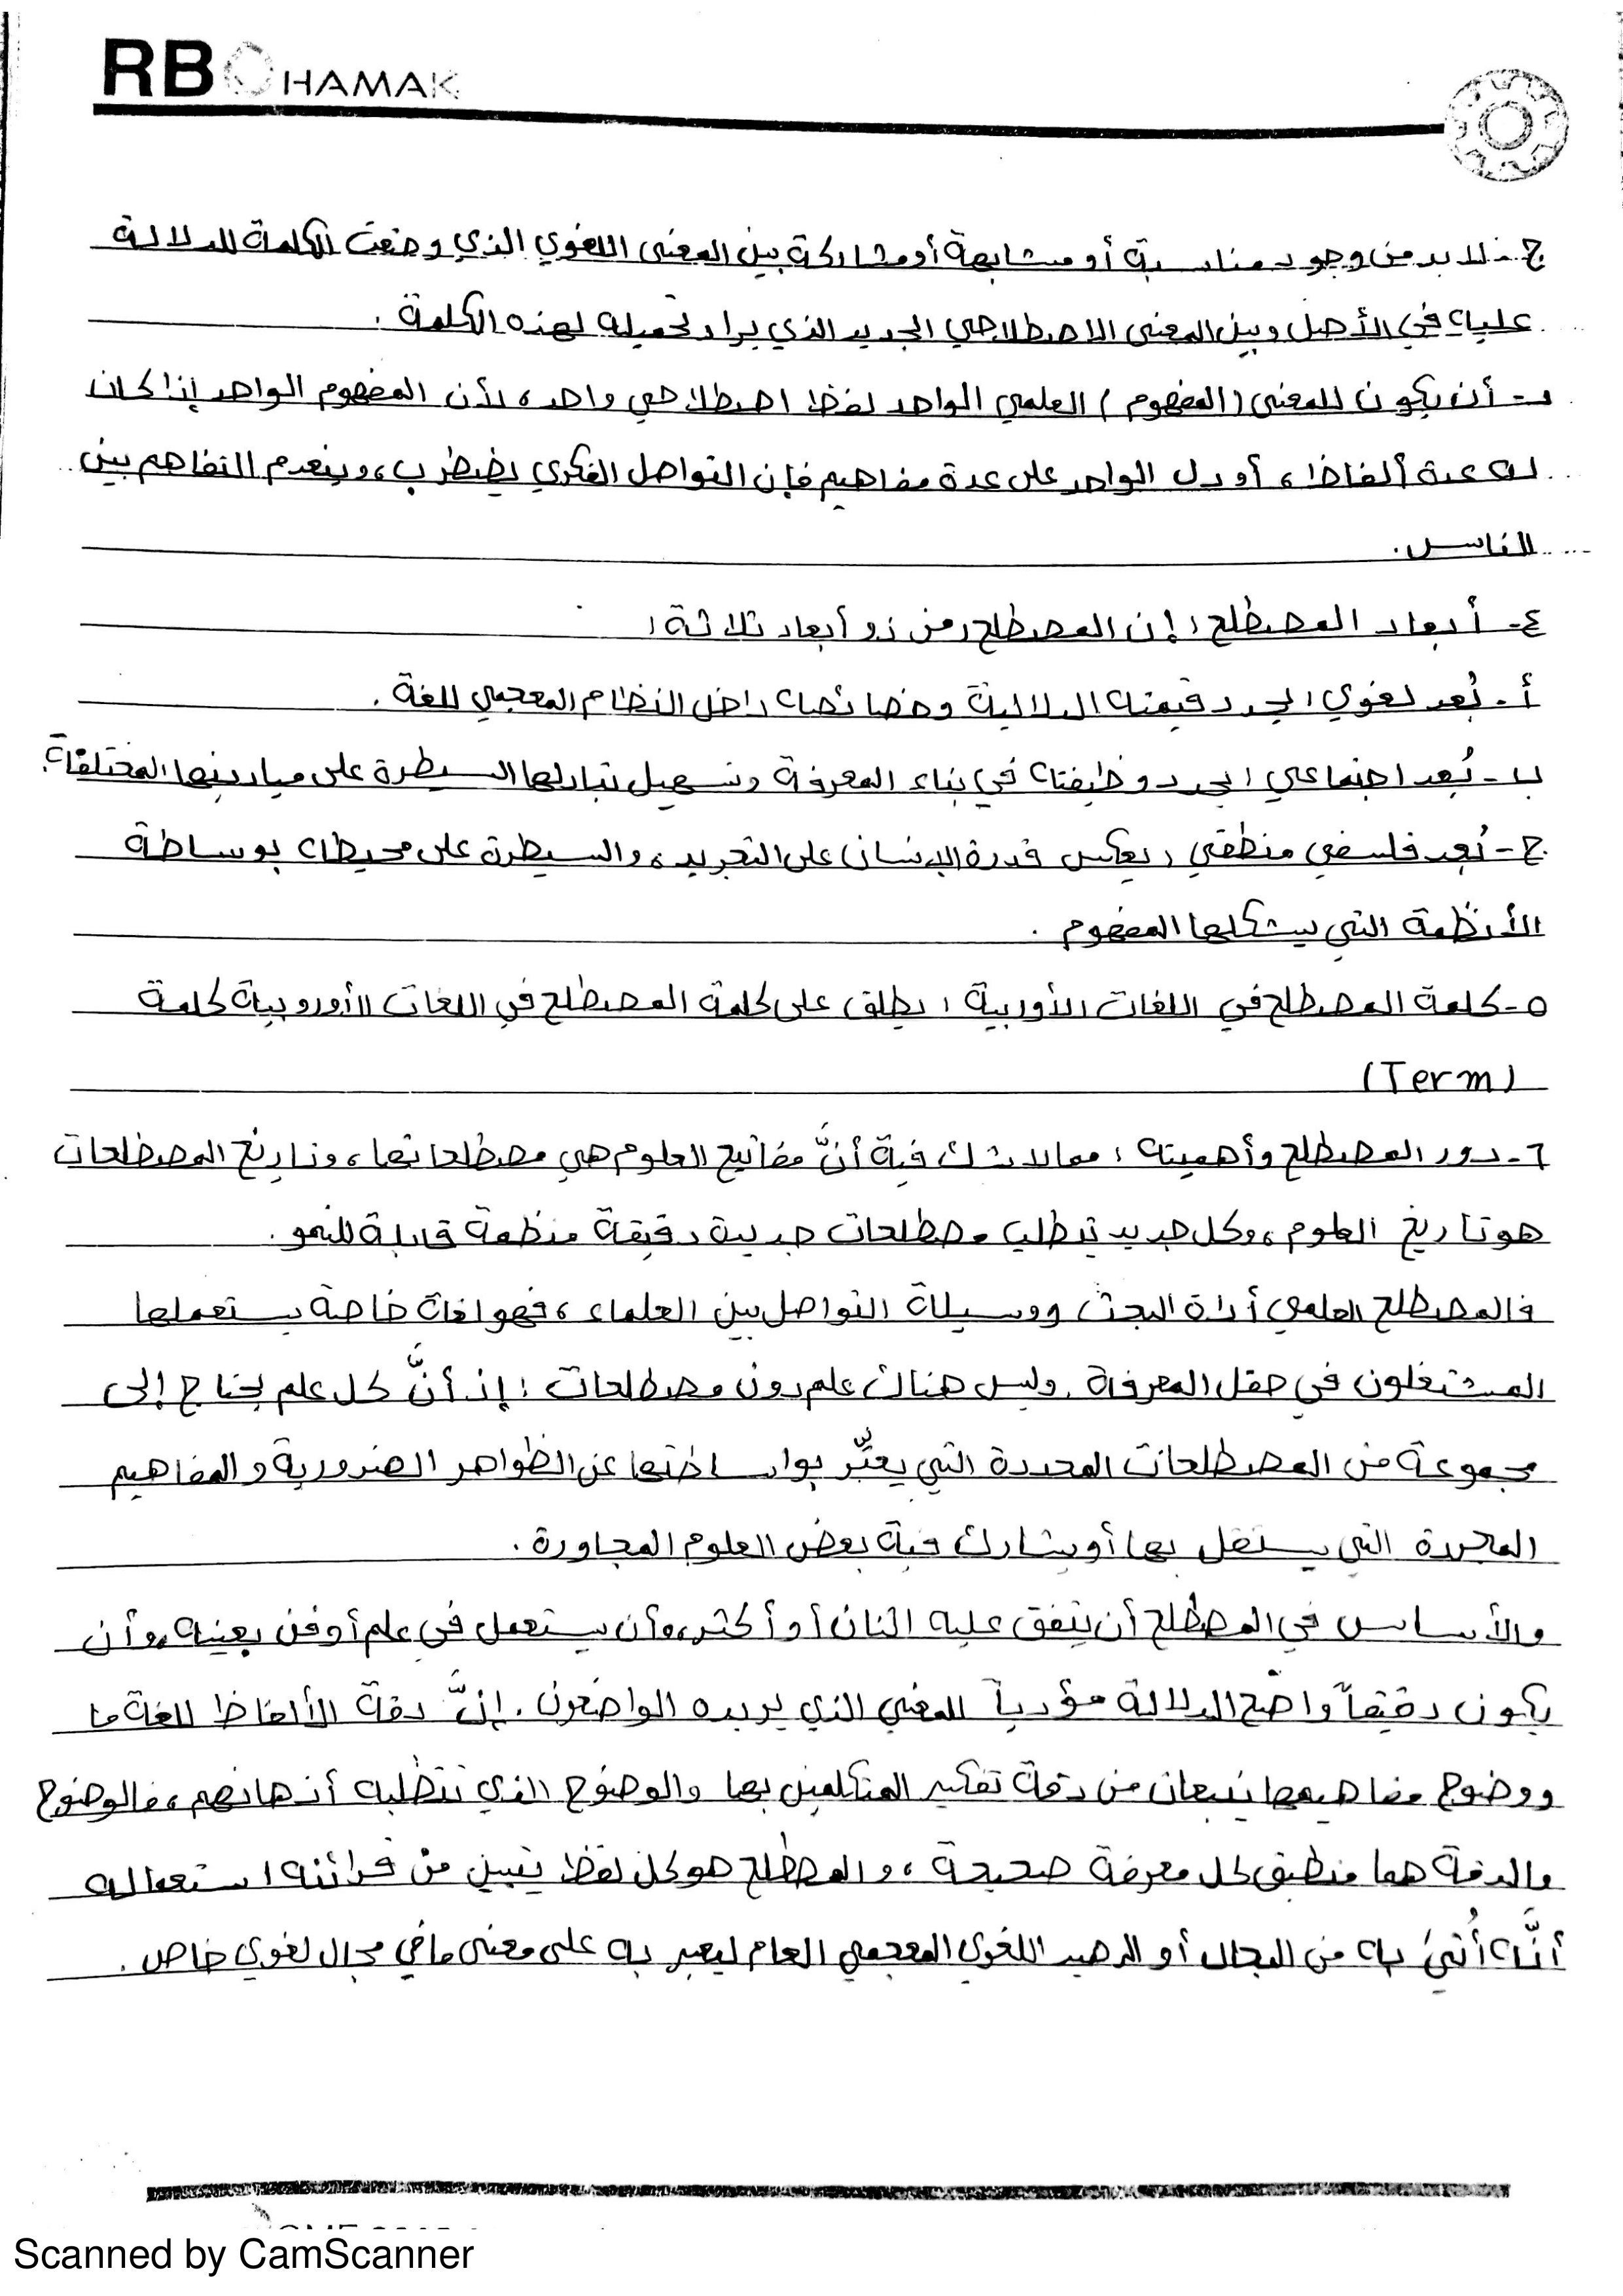 RBCHAMAK
ج - لابد من وجود مناسبة أو مشابهة أو مشاركة بين المعنى اللغوي الذي وضعت الكلمة للدلالة
عليه في الأصل وبين المعنى الاصطلاحي الجديد الذي يراد تحميله لهذه الكلمة .
د - أن يكون للمعنى (المفهوم) العلمي الواحد لفظ اصطلاحي واحد، لأن المفهوم الواحد إذا كان
له عدة ألفاظ، أو دل الواحد على عدة مفاهيم فإن التواصل الفكري يضطرب، وينعدم التفاهم بين
الناس.
٤ - أبعاد المصطلح: إن المصطلح رمز ذو أبعاد ثلاثة:
أ - بُعد لغوي: يحدد قيمته الدلالية وخصائصه داخل النظام المعجمي للغة .
ب - بُعد اجتماعي: يحدد وظيفته في بناء المعرفة وتسهيل تبادلها السيطرة على ميادينها المختلفة.
ج - بُعد فلسفي منطقي: يعكس قدرة الإنسان على التجريد، والسيطرة على محيطه بوساطة
الأنظمة التي يشكلها المفهوم .
٥ - كلمة المصطلح في اللغات الأوربية: يطلق على كلمة المصطلح في اللغات الأوروبية كلمة
(Term)
٦ - دور المصطلح وأهميته: مما لا شك فية أنَّ مفاتيح العلوم هي مصطلحاتها، وتاريخ المصطلحات
هو تاريخ العلوم، وكل جديد يتطلب مصطلحات جديدة دقيقة منظمة قابلة للنمو.
فالمصطلح العلمي أداة البحث ووسيلة التواصل بين العلماء، فهو لغة خاصة يستعملها
المشتغلون في حقل المعرفة. وليس هناك علم دون مصطلحات: إذ أنَّ كل علم يحتاج إلى
مجموعة من المصطلحات المحددة التي يعبّر بواساطتها عن الظواهر الضرورية والمفاهيم
المجردة التي يستقل بها أو يشارك فية بعض العلوم المجاورة .
والأساس في المصطلح أن يتفق عليه اثنان أو أكثر، وأن يستعمل في علم أو فن بعينه، وأن
يكون دقيقاً واضح الدلالة مؤدياً للمعنى الذي يريده الواضعون. إنَّ دقة الألفاظ للغة ما
ووضوح مفاهيمها ينبعان من دقة تفكير المتكلمين بها والوضوح الذي تتطلبه أذهانهم، فالوضوح
والدقة هما منطبق كل معرفة صحيحة، والمصطلح هو كل لفظ يتبين من قرائنه استعماله
أنَّه أُتيَ به من المجال أو الرصيد اللغوي المعجمي العام ليعبر به على معنى ما في مجال لغوي خاص .
Scanned by CamScanner